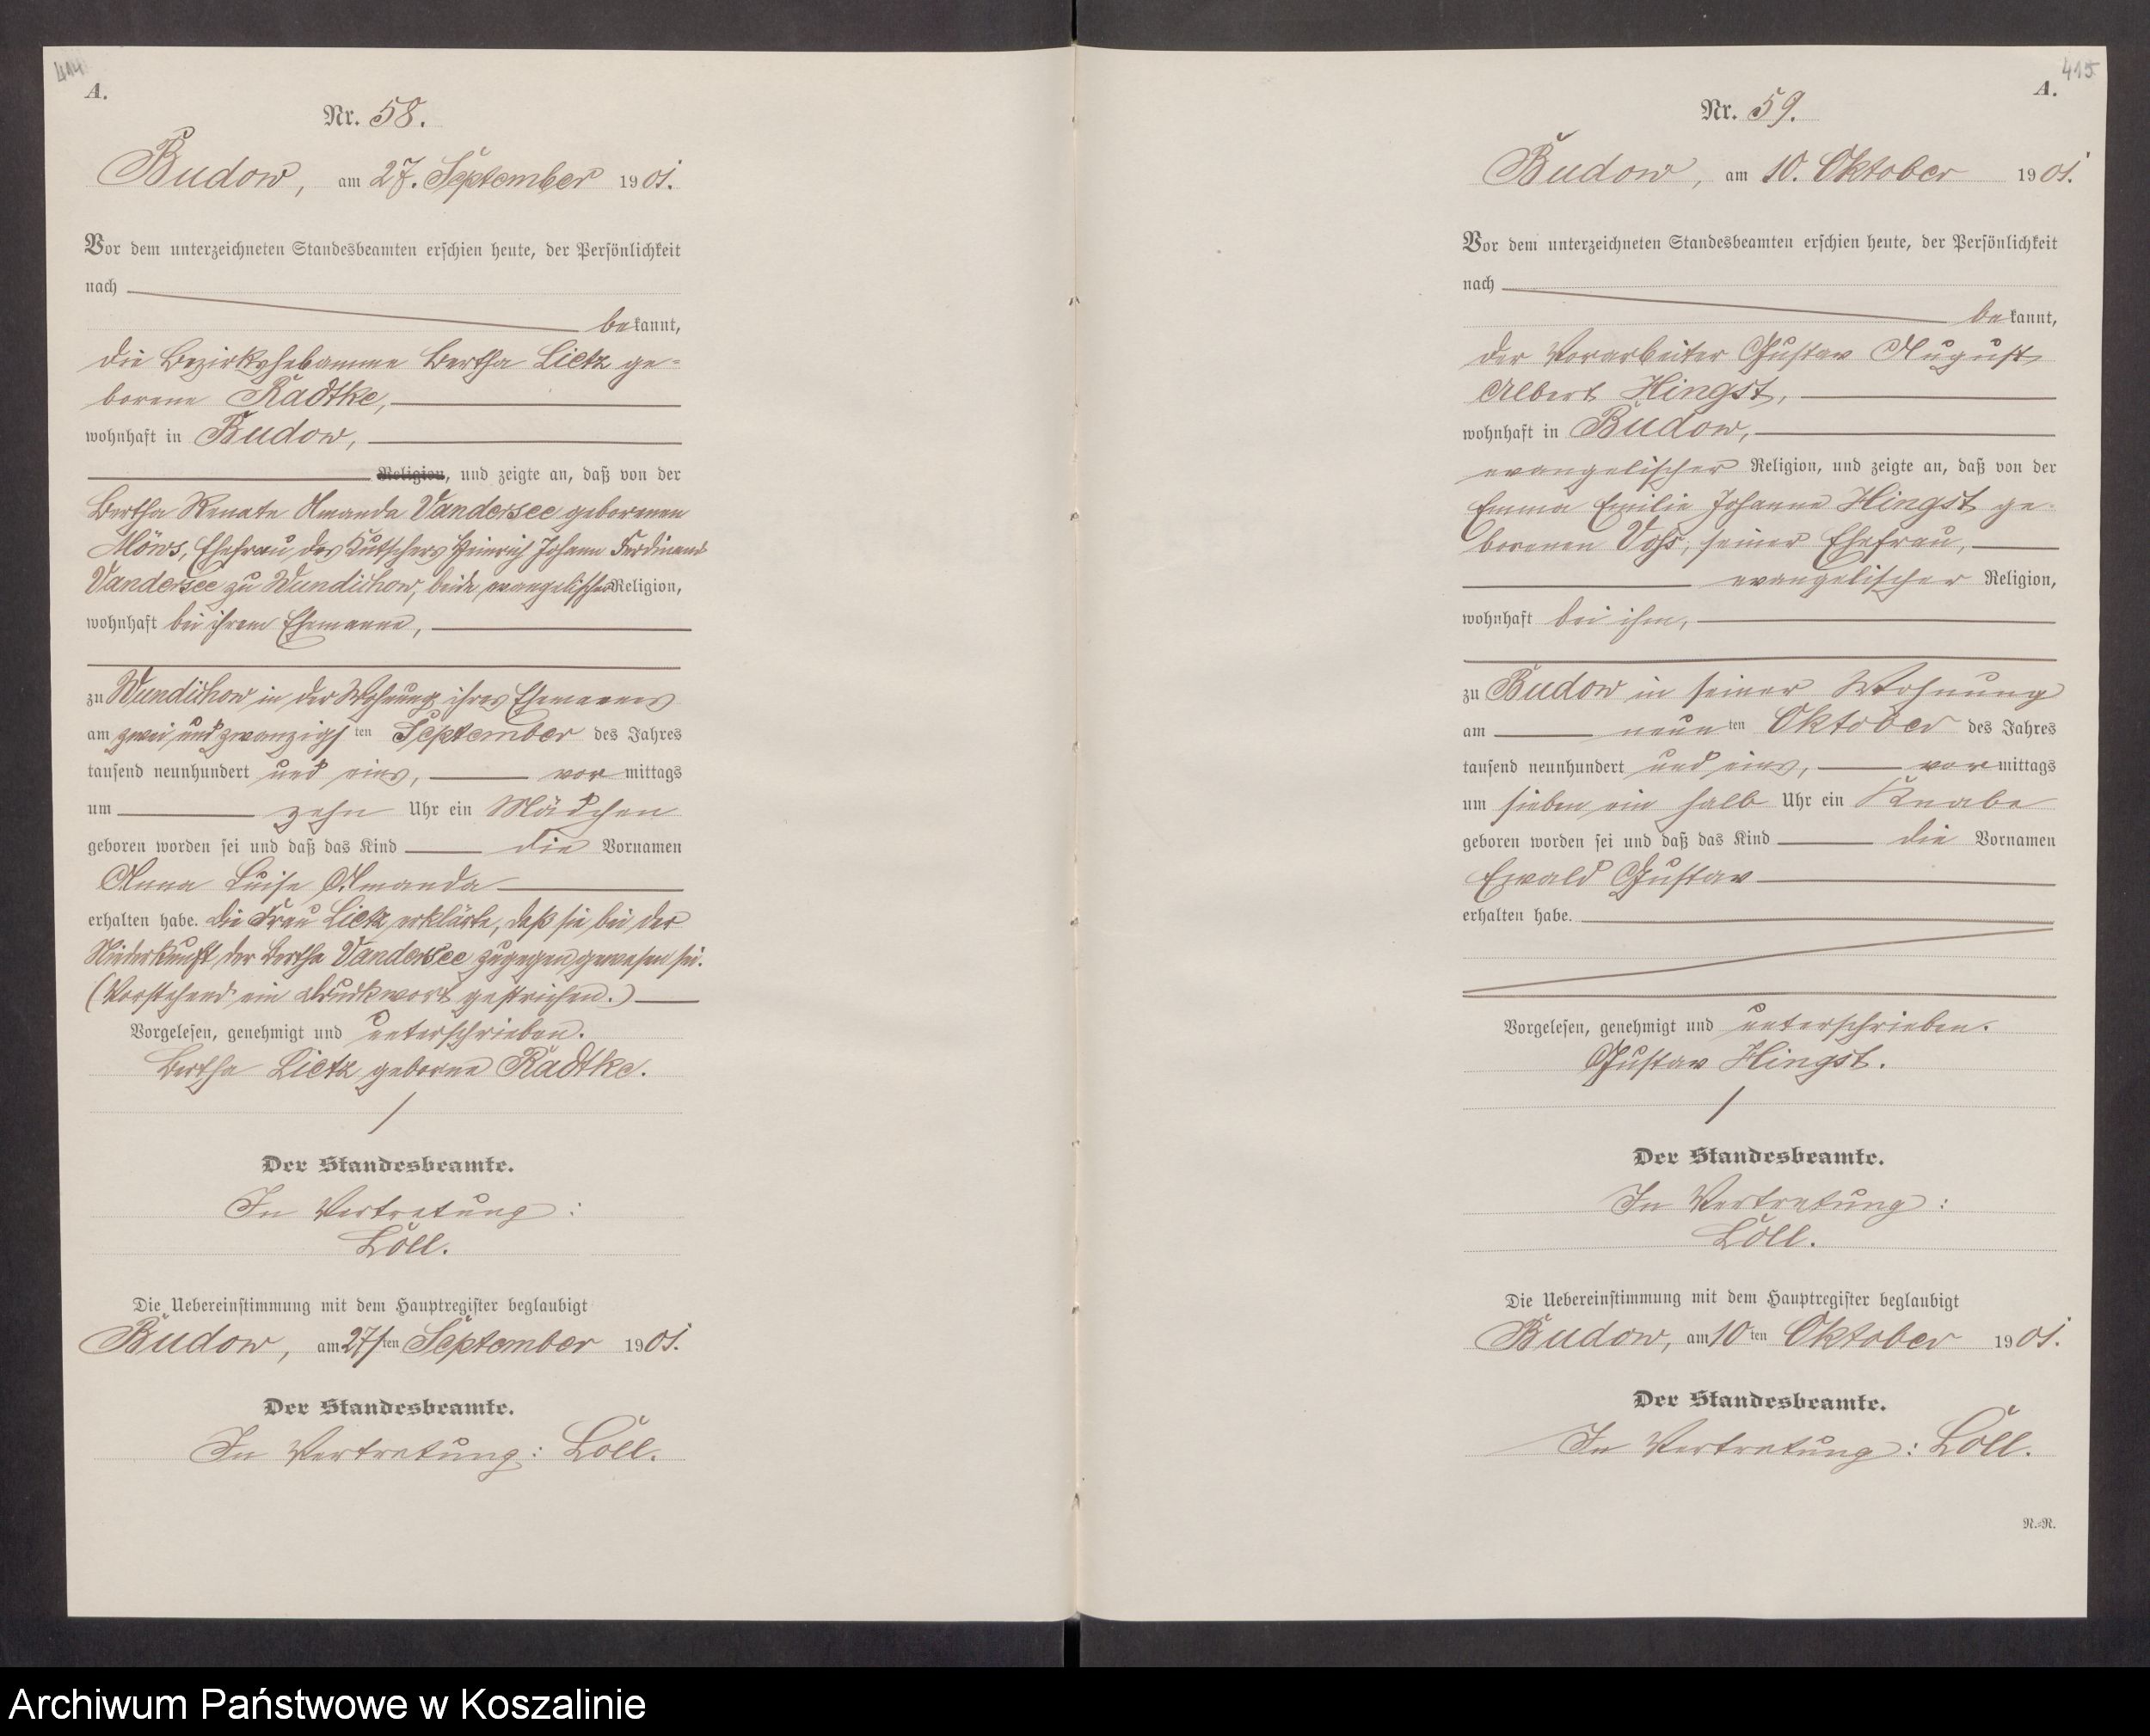 414
A.
Nr. 58.
Budow, am 27. September 1901.
Vor dem unterzeichneten Standesbeamten erschien heute, der Persönlichkeit
nach
bekannt,
die Bezirkshebamme Bertha Lietz ge-
borene Radtke,
wohnhaft in Budow,
Religion, und zeigte an, daß von der
Bertha Renate Amanda Vandersee geborenen
Möws, Ehefrau des Kutschers Heinrich Johann Ferdinand
Vandersee zu Wundichow, beide evangelischer Religion,
wohnhaft bei ihrem Ehemanne,
zu Wundichow in der Wohnung ihres Ehemannes
am zwei und zwanzigsten September des Jahres
tausend neunhundert und eins, vor mittags
um zehn Uhr ein Mädchen
geboren worden sei und daß das Kind die Vornamen
Anna Luise Amanda
erhalten habe. Die Frau Lietz erklärte, daß sie bei der
Niederkunft der Bertha Vandersee zugegen gewesen sei.
(Vorstehend ein Druckwort gestrichen.)
Vorgelesen, genehmigt und unterschrieben.
Bertha Lietz geborene Radtke.
Der Standesbeamte.
In Vertretung:
Löll.
Die Uebereinstimmung mit dem Hauptregister beglaubigt
Budow, am 27sten September 1901.
Der Standesbeamte.
In Vertretung: Löll.
415
A.
Nr. 59.
Budow, am 10. Oktober 1901.
Vor dem unterzeichneten Standesbeamten erschien heute, der Persönlichkeit
nach
bekannt,
der Vorarbeiter Gustav August
Albert Hingst,
wohnhaft in Budow,
evangelischer Religion, und zeigte an, daß von der
Emma Emilie Johanne Hingst ge-
borenen Voß, seiner Ehefrau,
evangelischer Religion,
wohnhaft bei ihm,
zu Budow in seiner Wohnung
am neunten Oktober des Jahres
tausend neunhundert und eins, vor mittags
um sieben ein halb Uhr ein Knabe
geboren worden sei und daß das Kind die Vornamen
Ewald Gustav
erhalten habe.
Vorgelesen, genehmigt und unterschrieben.
Gustav Hingst.
Der Standesbeamte.
In Vertretung:
Löll.
Die Uebereinstimmung mit dem Hauptregister beglaubigt
Budow, am 10ten Oktober 1901.
Der Standesbeamte.
In Vertretung: Löll.
N.=R.
Archiwum Państwowe w Koszalinie